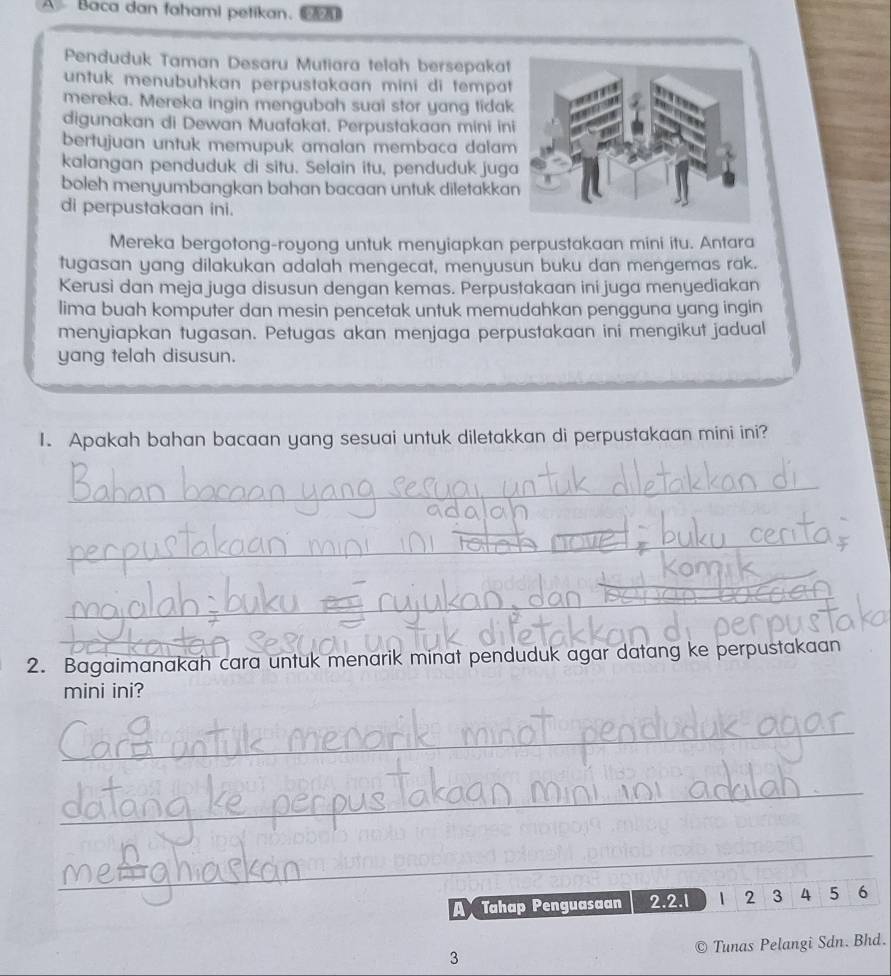 A Baca dan fahami petikan. 2.2.1
Penduduk Taman Desaru Mutiara telah bersepakat
untuk menubuhkan perpustakaan mini di tempat
mereka. Mereka ingin mengubah suai stor yang tidak
digunakan di Dewan Muafakat. Perpustakaan mini ini
bertujuan untuk memupuk amalan membaca dalam
kalangan penduduk di situ. Selain itu, penduduk juga
boleh menyumbangkan bahan bacaan untuk diletakkan
di perpustakaan ini.
Mereka bergotong-royong untuk menyiapkan perpustakaan mini itu. Antara
tugasan yang dilakukan adalah mengecat, menyusun buku dan mengemas rak.
Kerusi dan meja juga disusun dengan kemas. Perpustakaan ini juga menyediakan
lima buah komputer dan mesin pencetak untuk memudahkan pengguna yang ingin
menyiapkan tugasan. Petugas akan menjaga perpustakaan ini mengikut jadual
yang telah disusun.
1. Apakah bahan bacaan yang sesuai untuk diletakkan di perpustakaan mini ini?
Bahan bacaan yang sesuai untuk diletakkan di
adalah
perpustakaan mini ini novel, buku cerita,
komik
majalah, buku rujukan, dan bahan bacaan
berkaitan sesuai untuk diletakkan di perpustaka
2. Bagaimanakah cara untuk menarik minat penduduk agar datang ke perpustakaan
mini ini?
Cara untuk menarik minat penduduk agar
datang ke perpustakaan mini ini adalah
menghiaskan
A Tahap Penguasaan 2.2.1 1 2 3 4 5 6
© Tunas Pelangi Sdn. Bhd.
3